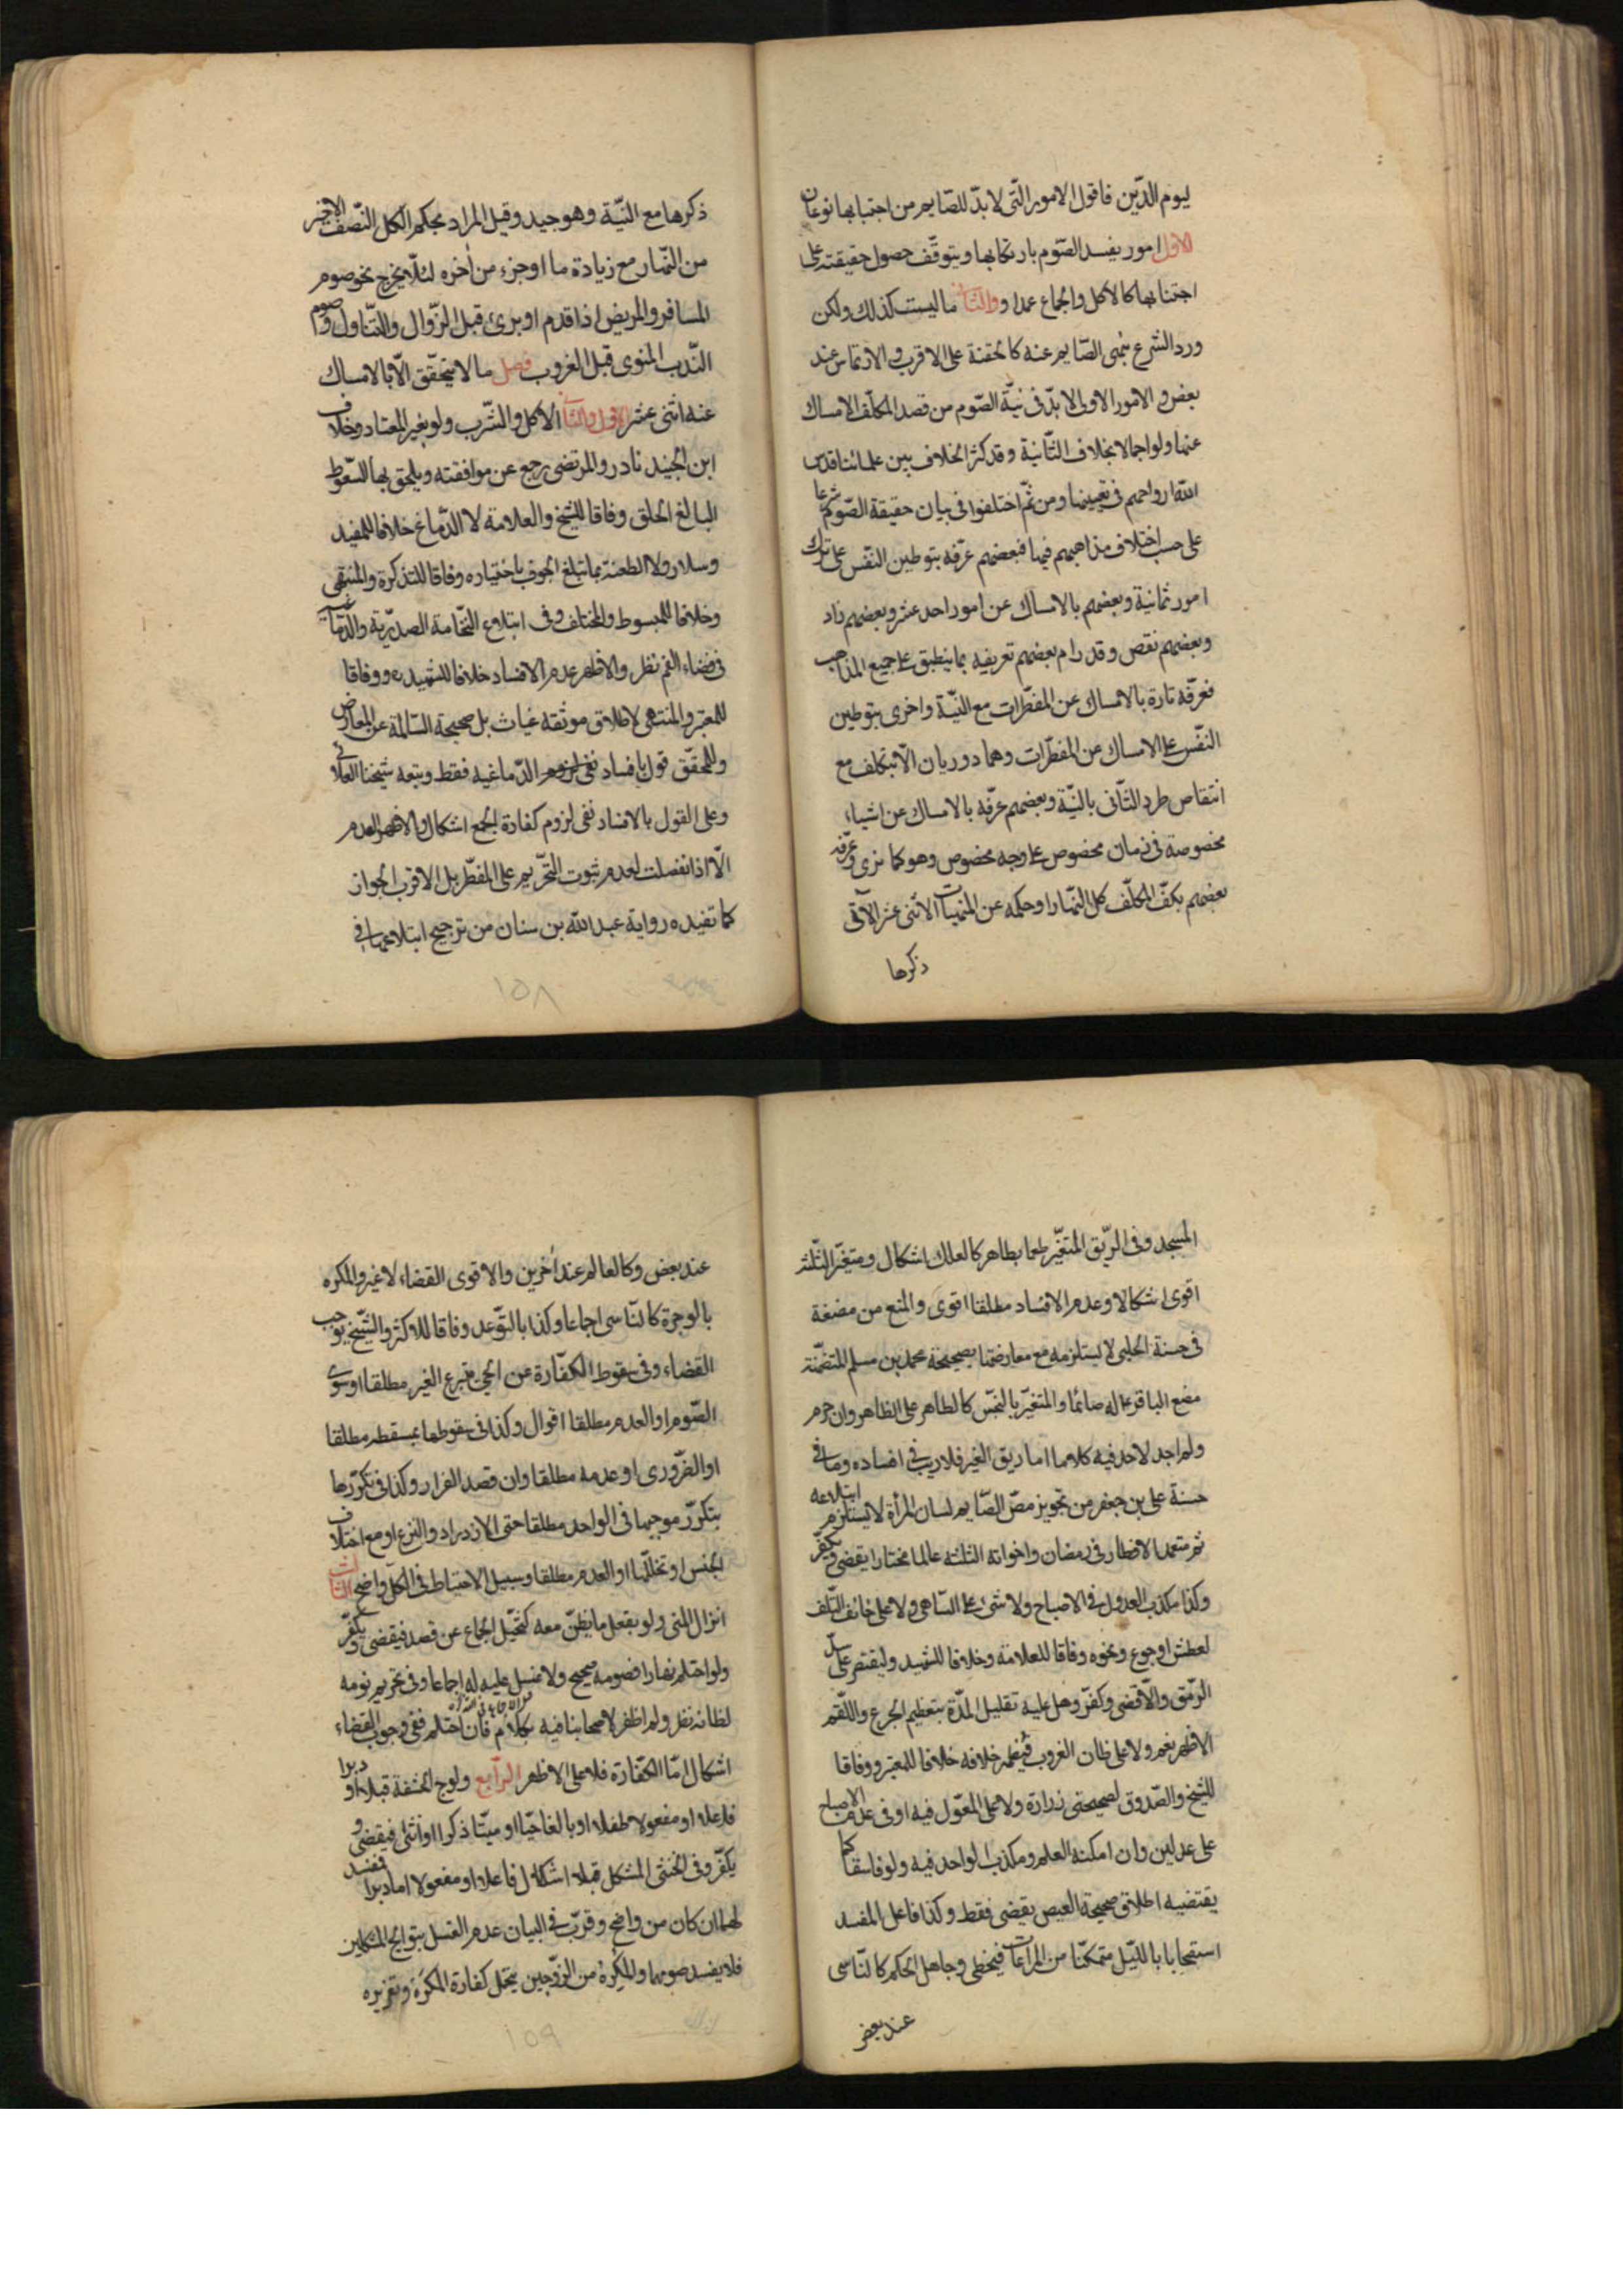 ليوم الدّين فاقول الامور الّتى لا بدّ للصّايم من اجتنابها نوعان
الاول امور يفسد الصّوم بارتكابها ويتوقّف حصول حقيقته على
اجتنابها كالاكل والجماع عمدا و والثانى ما ليست كذلك ولكن
ورد الشرع بنهى الصّايم عنه كالحقنة على الاقرب والارتماس عند
بعض والامور الاولى لا بدّ فى نيّة الصّوم من قصد المكلّف الامساك
عنها ولو اجمالا بخلاف الثّانية وقد كثر الخلاف بين علمائنا قدس
الله ارواحهم فى تعيينها ومن ثمّ اختلفوا فى بيان حقيقة الصّوم شرعا
على حسب اختلاف مذاهبهم فيها فبعضهم عرّفه بتوطين النّفس على ترك
امور ثمانية وبعضهم بالامساك عن امور احد عشر وبعضهم زاد
وبعضهم نقص وقد رام بعضهم تعريفه بما ينطبق على جميع المذاهب
فعرّفه تارة بالامساك عن المفطّرات مع النيّة واخرى بتوطين
النّفس على الامساك عن المفطّرات وهما دوريان الّا بتكلف مع
انتقاص طرد الثّانى بالنيّة وبعضهم عرّفه بالامساك عن اشياء
مخصوصة فى زمان مخصوص على وجه مخصوص وهو كما ترى وعرّفه
بعضهم بكفّ المكلّف كل النّهار او حكمه عن المنهيات الاثنى عشر الآتى
ذكرها
ذكرها مع النيّة وهو جيد وقيل المراد بحكم الكل النّصف الاخير
من النّهار مع زيادة ما او جزء من اخره لئلّا يخرج نحو صوم
المسافر والمريض اذا قدم او برئ قبل الزّوال والتّناول وصوم
النّدب المنوى قبل الغروب فصل ما لا يتحقّق الّا بالامساك
عنه اثنى عشر الاول والثانى الاكل والشّرب ولو بغير المعتاد وخلاف
ابن الجنيد نادر والمرتضى رجع عن موافقته ويلحق بها السّعوط
البالغ الحلق وفاقا للشيخ والعلامة لا الدّماغ خلافا للمفيد
وسلار ولا الطعنة بما تبلغ الجوف باختياره وفاقا للتذكرة والمنتهى
وخلافا للمبسوط والمختلف وفى ابتلاع النّخامة الصدريّة والدّماغية
فى فضاء الفم نظر والاظهر عدم الافساد خلافا للشهيد ره ووفاقا
للمعتبر والمنتهى لاطلاق موثقة غياث بل صحيحة السّالمة عن المعارض
وللمحقّق قول بافساد الدّماغيه فقط وتبعه شيخنا العلائى
وعلى القول بالافساد ففى لزوم كفارة الجمع اشكال والاظهر العدم
الّا اذا انفصلت لعدم ثبوت التّحريم على المفطّر بل الاقرب الجواز
كما تفيده رواية عبد الله بن سنان من ترجيح ابتلاعها فى
١٥٨
المسجد وفى الريّق المتغيّر طعما بطاهر كالعلك اشكال ومتغيّر الثّلثة
اقوى اشكالا وعدم الافساد مطلقا اقوى والمنع من مضغة
فى حسنة الحلبى لا يستلزمه مع معارضتها بصحيحة محمد بن مسلم المتضمّنة
مضغ الباقر ع له صائما والمتغيّر بالنجّس كالطاهر على الظاهر وان حرم
ولم اجد لاحد فيه كلاما اما ريق الغير فلا ريب فى افساده وما فى
حسنة على بن جعفر من تجويز مصّ الصّايم لسان المرأة لا يستلزم ابتلاعه
ثم متعمد الافطار فى رمضان واخواته الثلثة عالما مختارا يقضى ويكفّر
وكذا مكذب العدول فى الاصباح ولا شئ على السّاهى ولا على خائف التلف
لعطش او جوع ونحوه وفاقا للعلامة وخلافا للشهيد وليقتصر على سدّ
الرّمق والّا قضى وكفّر وهل عليه تقليل المدّة بتعظيم الجرع واللّقم
الاظهر نعم ولا على ظان الغروب فيظهر خلافه خلافا للمعتبر ووفاقا
للشيخ والصّدوق لصحيحتى زرارة ولا على المعّول فيه او فى عدم الاصباح
على عدلين وان امكنه العلم ومكذب الواحد فيه ولو فاسقا كما
يقتضيه اطلاق صحيحة العيص يقضى فقط وكذا فاعل المفسد
استصحابا بالليّل متمكنّا من المراعات فيخطى وجاهل الحكم كالنّاسى
عند بعض
عند بعض وكالعالم عند اخرين والاقوى القضاء لا غير والمكره
بالوجرة كالنّاسى اجماعا وكذا بالتّوعد وفاقا للاكثر والشّيخ يوجب
القضاء وفى سقوط الكفّارة عن الحىّ بتبرع الغير مطلقا او سوى
الصّوم او العدم مطلقا اقوال وكذا فى سقوطها بمسقطه مطلقا
او الضّرورى او عدمه مطلقا وان قصد الفرار وكذا فى تكرّرها
بتكرّر موجبها فى الواحد مطلقا حتى الازدراد والنزع او مع اختلاف
الجنس او تخللّها او العدم مطلقا وسبيل الاحتياط فى الكلّ واضح الثالث
انزال المنى ولو بفعل ما يظنّ معه كتخيّل الجماع عن قصد فيقضى ويكفّر
ولو احتلم نهارا فصومه صحيح ولا غسل عليه له اجماعا وفى تحريم نومه
لظانه نظر ولم اظفر لاصحابنا فيه بكلام فان احتلم ففى وجوب القضاء
اشكال امّا الكفّارة فلا على الاظهر الرّابع ولوج الحشفة قبلا او دبرا
فاعلا او مفعولا طفلا او بالغا حيّا او ميّتا ذكرا او انثى فيقضى و
يكفّر وفى الخنثى المشكل قبلا اشكال فاعلا او مفعولا اما دبرا فمفسد
لهما ان كان من واضح وقرّب فى البيان عدم الغسل بتوالج المشكلين
فلا يفسد صومهما والمكره من الزوّجين يتحمّل كفارة المكره وتعزيره
١٥٩